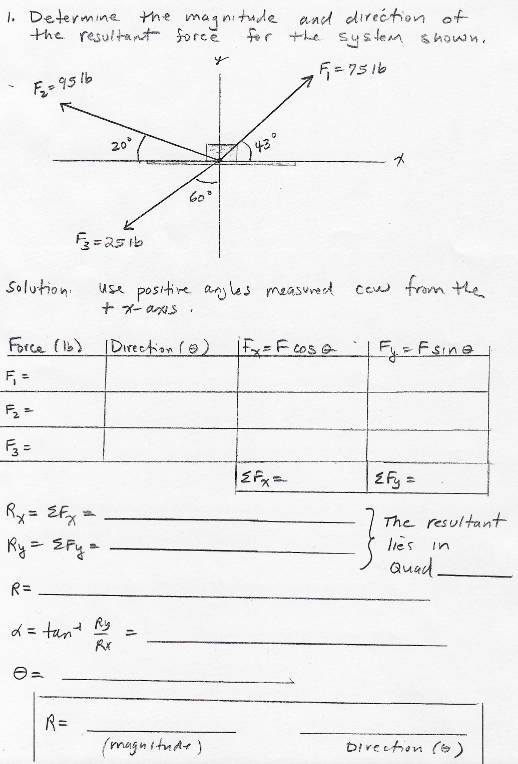 1. Determine the magnitude and direction of
the resultant force for the system shown.
y
F₁ = 75 lb
F₂ = 95 lb
20°
43°
x
60°
F₃ = 25 lb
Solution: Use positive angles measured ccw from the
+ x-axis.
Force (lb) Direction (θ) Fx = F cos θ Fy = F sin θ
F₁ =
F₂ =
F₃ =
ΣFx = ΣFy =
Rx = ΣFx =
Ry = ΣFy =
The resultant
lies in
Quad
R =
α = tan⁻¹ Ry/Rx =
θ =
R =
(magnitude) Direction (θ)